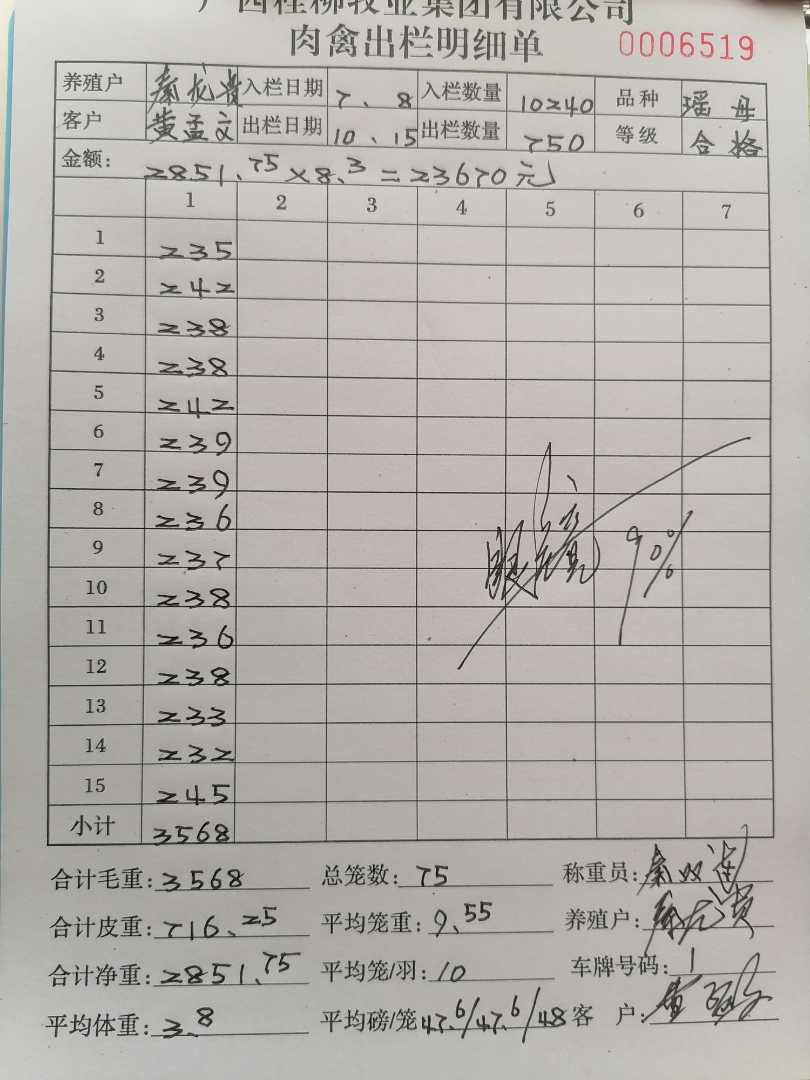 广西桂柳牧业集团有限公司
肉禽出栏明细单 0006519
养殖户 秦龙贵 入栏日期 7、8 入栏数量 10240 品种 瑶母
客户 黄孟文 出栏日期 10、15 出栏数量 750 等级 合格
金额: 2851.75×8.3=23670元
1 2 3 4 5 6 7
1 235
2 242
3 238
4 238
5 242
6 239
7 239
8 236
9 237
10 238
11 236
12 238
13 233
14 232
15 245
小计 3568
90%
合计毛重: 3568 总笼数: 75 称重员:
合计皮重: 716.25 平均笼重: 9.55 养殖户:
合计净重: 2851.75 平均笼/羽: 10 车牌号码: 1
平均体重: 3.8 平均磅/笼 47.6/47.6/48 客 户: